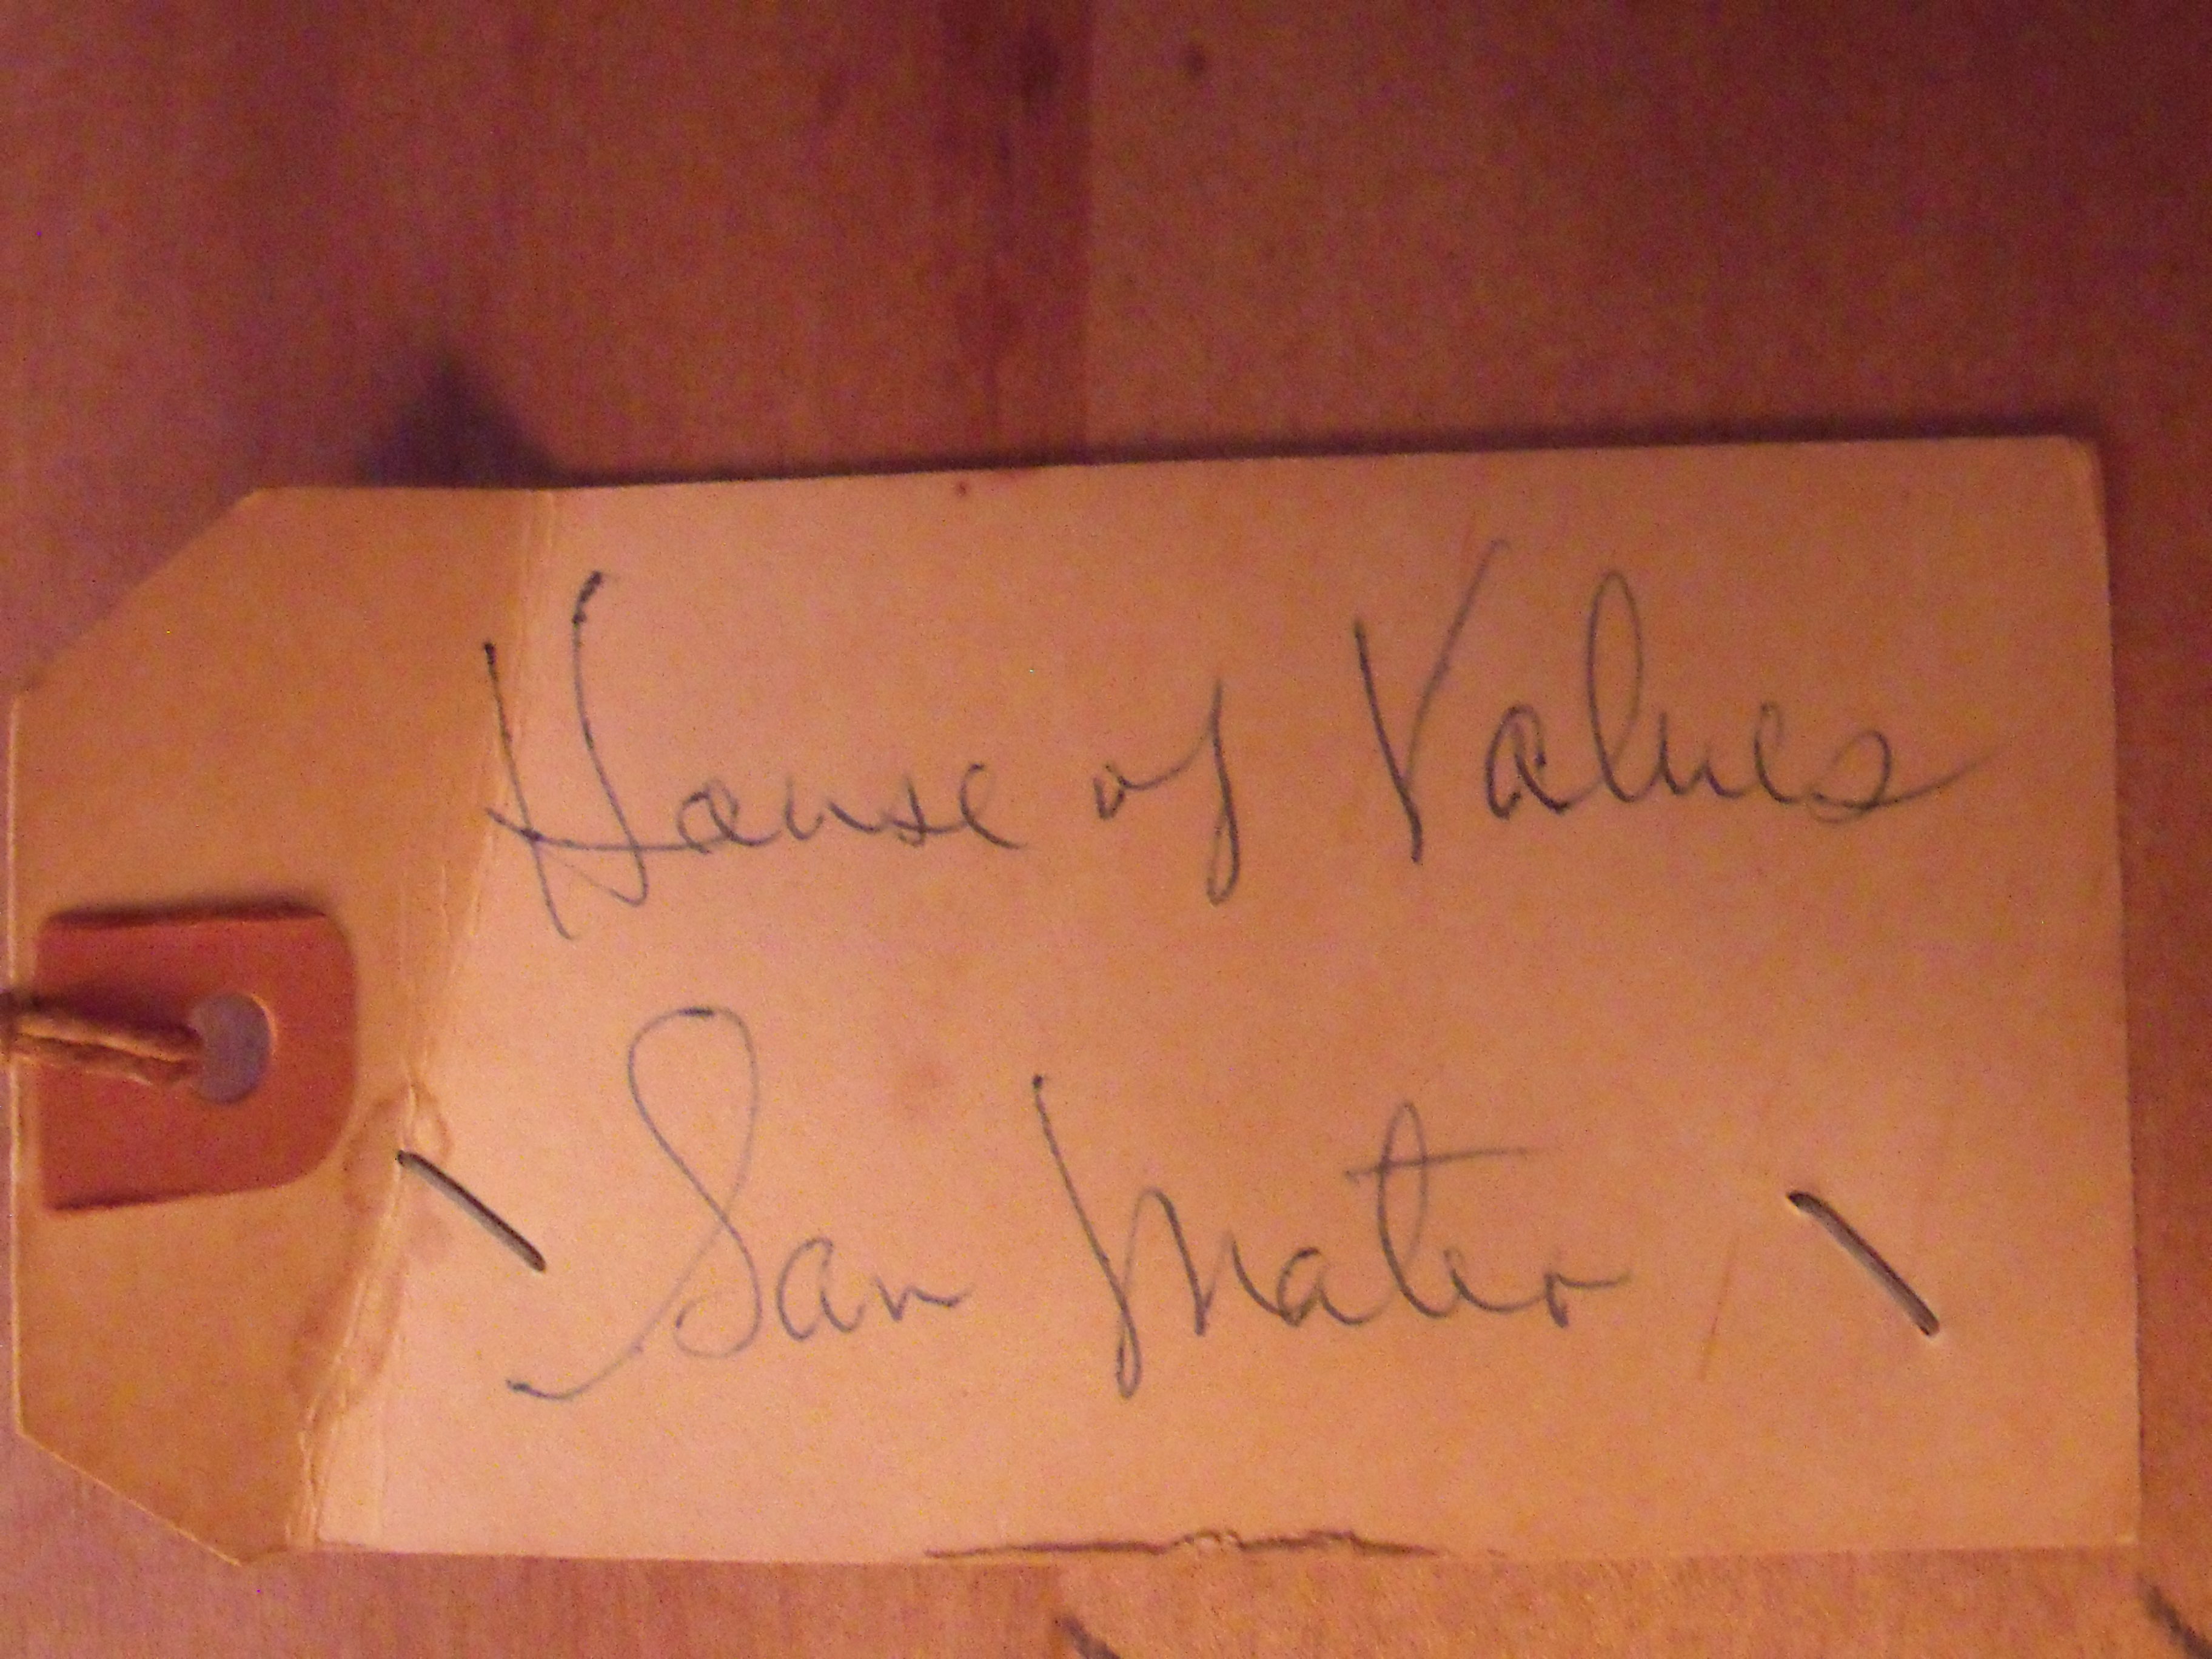 House of Values
San Mateo